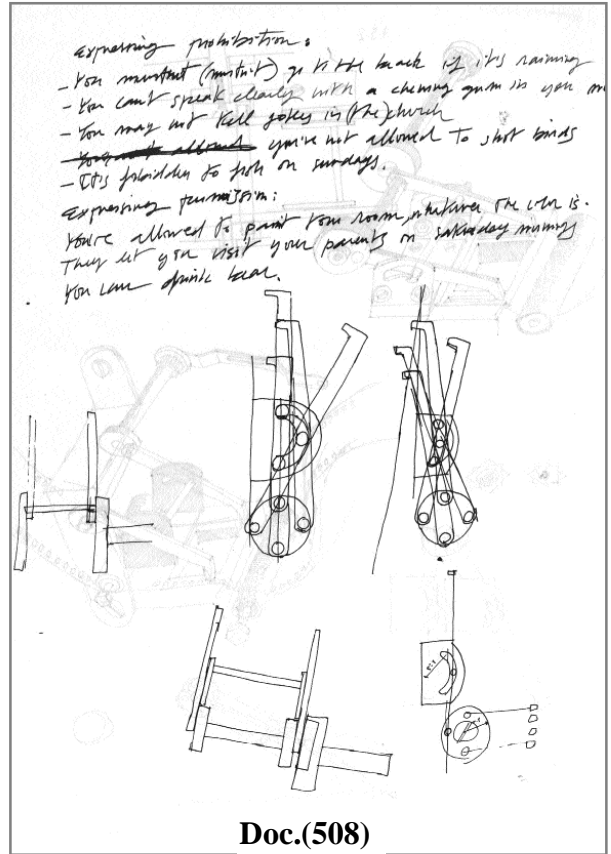 Expressing prohibition:
- You mustnot (mustn't) go to the beach if it's raining
- You can't speak clearly with a chewing gum in you
- You may not tell jokes in (the) church
you're not allowed to shot birds
- It's forbidden to fish on sundays.
Expressing permission:
You're allowed to paint your room, whatever the color is.
They let you visit your parents on saturday mornings
You can drink bear.
Doc.(508)